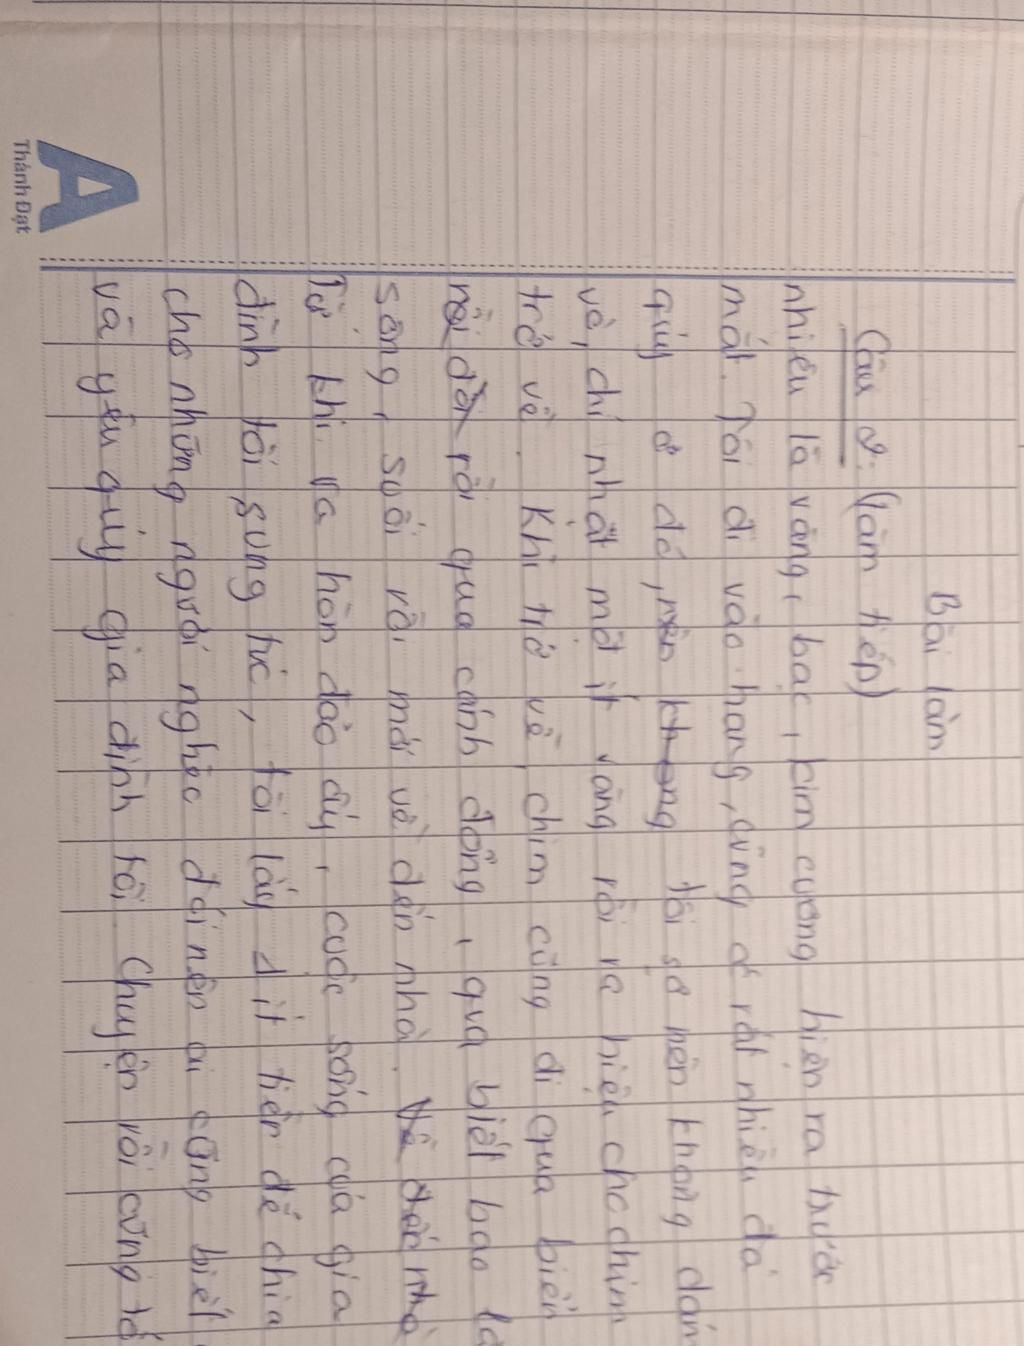 Bài làm
Câu 2: (làm tiếp)
nhiêu là vàng, bạc, kim cương hiện ra trước
mắt. Tôi đi vào hang, cũng có rất nhiều đá
quý ở đó, nên không tôi sợ nên không dám
về, chỉ nhặt một ít vàng rồi ra hiệu cho chim
trở về. Khi trở về, chim cũng đi qua biển
rồi đời rồi qua cánh đồng, qua biết bao là
sông, suối rồi mới về đến nhà. Về đến nhà
Từ khi ra hòn đảo ấy, cuộc sống của gia
đình tôi sung túc, tôi lấy 1 ít tiền để chia
cho những người nghèo đói nên ai cũng biết
và yêu quý gia đình tôi. Chuyện rồi cũng tớ
A
Thành Đạt